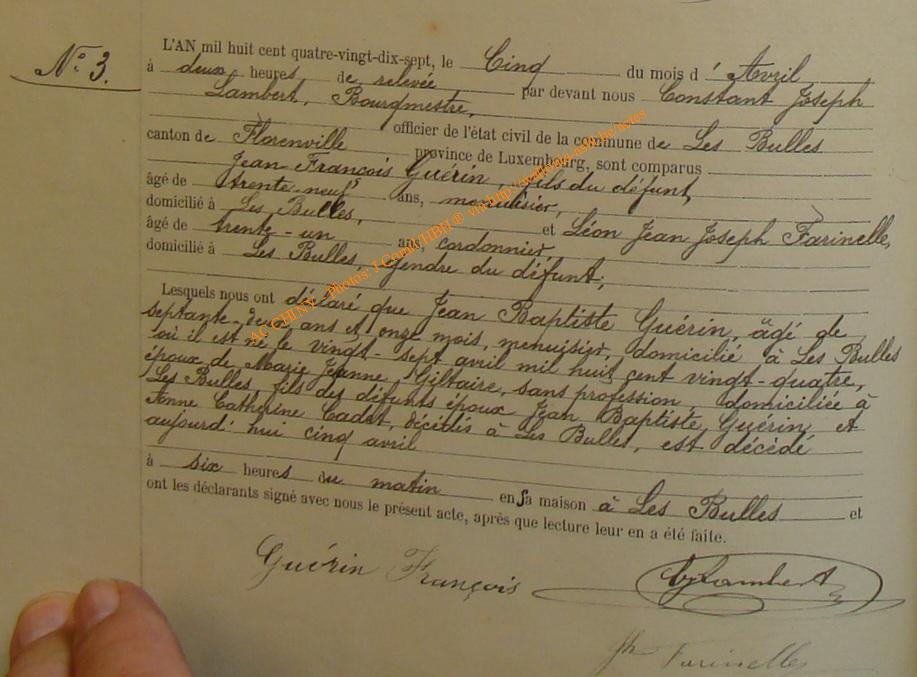 N° 3.
L'AN mil huit cent quatre-vingt-dix-sept, le Cinq du mois d' Avril
à deux heures de relevée par devant nous Constant Joseph
Lambert, Bourgmestre,
officier de l'état civil de la commune de Les Bulles
canton de Florenville province de Luxembourg, sont comparus
Jean François Guérin, fils du défunt,
âgé de trente-neuf ans, menuisier,
domicilié à Les Bulles, et Léon Jean Joseph Farinelle,
âgé de trente-un ans, cordonnier,
domicilié à Les Bulles, gendre du défunt;
Lesquels nous ont déclaré que Jean Baptiste Guérin, âgé de
septante-deux ans et onze mois, menuisier, domicilié à Les Bulles
où il est né le vingt-sept avril mil huit cent vingt-quatre,
époux de Marie Jeanne Giltaire, sans profession, domiciliée à
Les Bulles, fils des défunts époux Jean Baptiste Guérin et
Anne Catherine Cadet, décédés à Les Bulles, est décédé
aujourd'hui cinq avril
à six heures du matin en sa maison à Les Bulles et
ont les déclarants signé avec nous le présent acte, après que lecture leur en a été faite.
Guérin François
Lambert
Farinelle